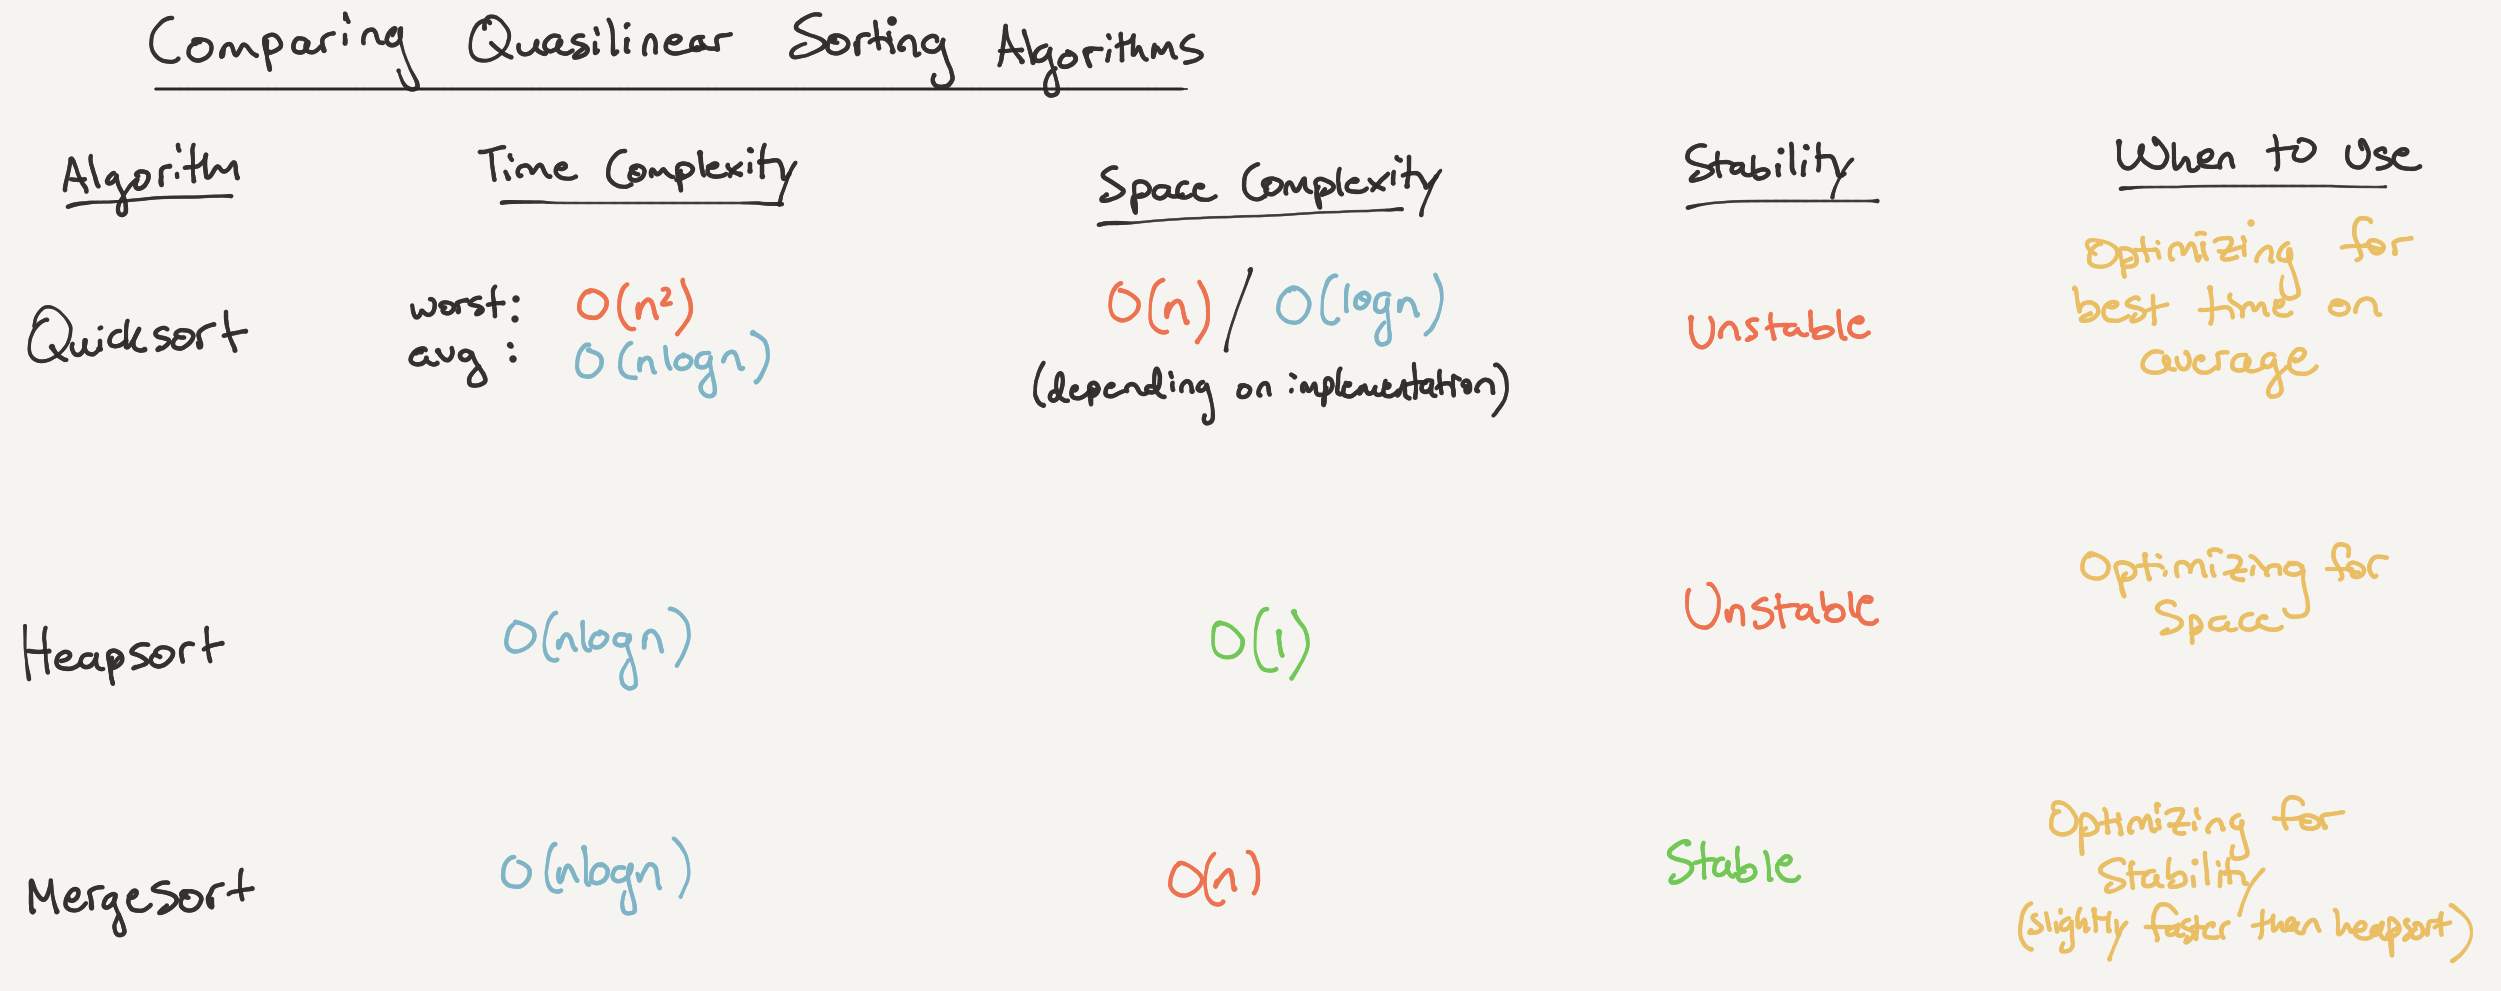 Comparing Quasilinear Sorting Algorithms
Algorithm Time Complexity Space Complexity Stability When to Use
Quicksort
worst: O(n²)
avg: O(nlogn)
O(n) / O(logn)
(depending on implementation)
Unstable
Optimizing for
best time on
average
Heapsort O(nlogn) O(1) Unstable
Optimizing for
Space
Mergesort O(nlogn) O(n) Stable
Optimizing for
Stability
(slightly faster than heapsort)